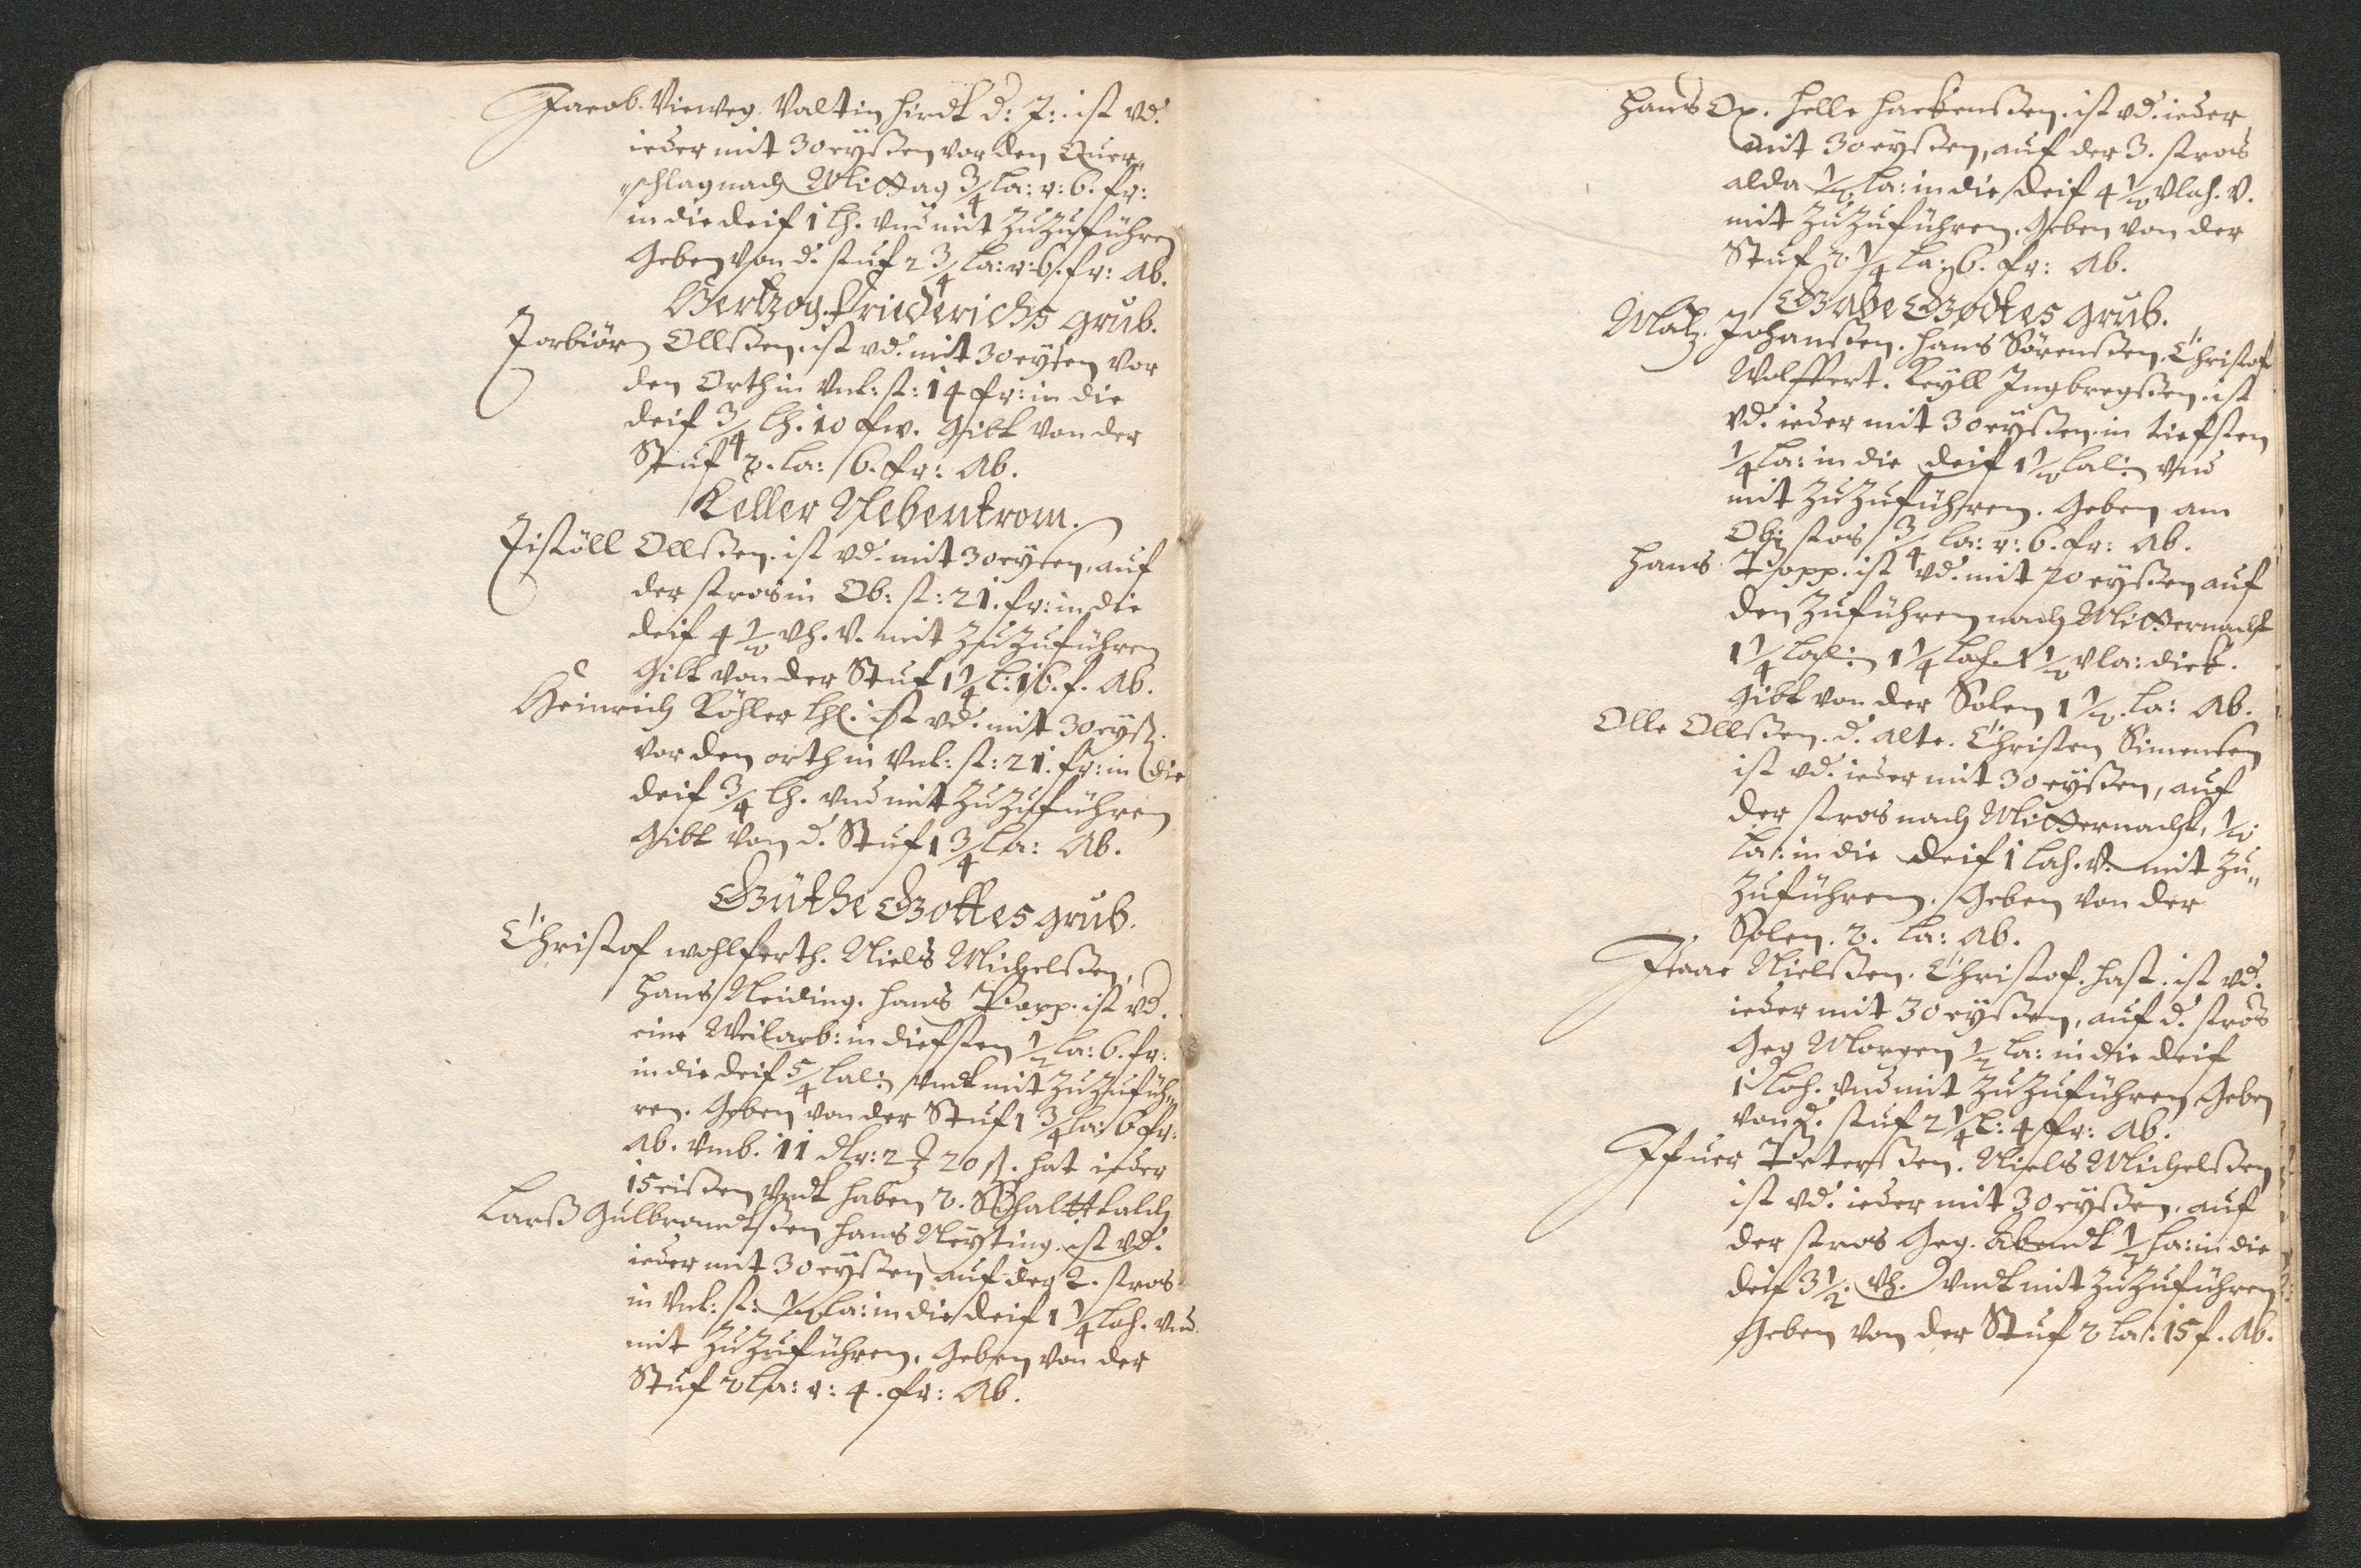 Jacob. Vieweg. Valtin Hirdt d: J: ist vd.
ieder mit 30 eyßen vor den Quer„
„schlag nach Mittag 3/4 la: v: 6. fr:
in die deif 1 lh. vnd mit Zu Zuführen
Geben von d. stuf 2 3/4 la: v: 6. fr: Ab.
Hertzog Friederichs grub.
Torbiörn Ollßen. ist vd. mit 30 eysen vor
den Orth in Vnl: st: 14 fr: in die
deif 3/4 lh. 10 fr. Gibt von der
Stuf 2. la: 6. fr: Ab.
Keller Nebentrom.
Tistöll Ollßen. ist vd. mit 30 eysen, auf
der stros in Ob: st: 21. fr: in die
deif 4 1/2 vh. v. mit Zu Zuführen
Gibt von der Stuf 1 1/4 l: 16. f. Ab.
Heinrich Köhler lh. ist vd. mit 30 eyß.
vor den orth in Vnl: st: 21. fr: in die
deif 3/4 lh. vnd mit Zu Zuführen
Gibt von d. Stuf 1 3/4 la: Ab.
Güthe Gottes grub.
Christof wohlferth. Niels Michelßen,
Hans Neiding. Hans Popp. ist vd.
eine Weilarb: in diefsten 1/2 la: 6. fr:
in die deif 5/4 lal: vndt mit Zu Zufüh„
ren. Geben von der Stuf 1 3/4 la: 6 fr:
Ab. vmb. 11 dlr: 2 20 ß. hat ieder
15 eißen vndt haben 2. Schalttkalch
Larß Gulbrandtßen Hans Neyting. ist vd.
ieder mit 30 eyßen auf der 2. stros
in Vnl: st: 1/2 la: in die deif 1 1/4 lah. vnd
mit Zu Zuführen. Geben von der
Stuf 2 la: v: 4. fr: Ab.
Hans Ox. Helle Hackenßen. ist vd. ieder
mit 30 eyßen, auf der 3. stros
alda 1/2 la: in die deif 4 1/2 vlah. v.
mit Zu Zuführen. Geben von der
Stuf 2 1/4 la: 6. fr: Ab.
Gabe Godtes grub.
Matz. Johanßen. Hans Sörenßen. Christof
Wolffert. Keyll Ingbregßen. ist
vd. ieder mit 30 eyßen. in tiefsten
1/4 la: in die deif 1 1/2 lal: vnd
mit Zu Zuführen. Geben am
Ob: stos 3/4 la: v: 6. fr: Ab.
Hans Popp. ist vd. mit 70 eyßen auf
den Zuführen nach Mitternacht
1 1/4 lal: 1 1/4 lah. 1 1/2 vla: dick.
Gibt von der Solen 1 1/2. la: Ab.
Olle Ollßen. d. alte. Christen Simensen
ist vd. ieder mit 30 eyßen, auf
der stros nach Mitternacht, 1/2
la: in die deif 1 lah. v. mit Zu„
Zuführen. Geben von der
Solen. 2. la: Ab.
Isaac Nielßen. Christof. Hast. ist vd.
ieder mit 30 eyßen, auf d. stros
Geg Morgen 1/2 la: in die deif
1 lah. vnd mit Zu Zuführen Geben
von d. stuf 2 1/4 l: 4 fr: Ab.
Ifuer Peterßen. Niels Michelßen
ist vd. ieder mit 30 eyßen. auf
der stros Geg. Abendt 1/2 la: in die
deif 3 1/2. vh. vndt mit Zu Zuführen
Geben von der Stuf 2 la: 15 f. Ab.